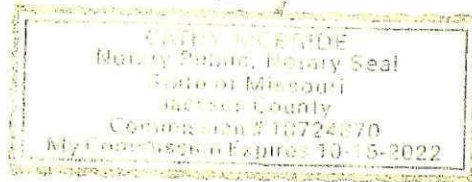 CATHY MCBRIDE
Notary Public, Notary Seal
State of Missouri
Jackson County
Commission #
My Commission Expires 10-15-2022